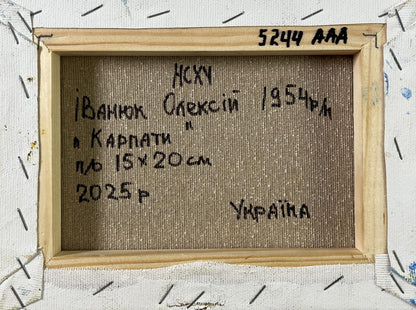 5244 AAA
НСХУ
Іванюк Олексій 1954р/н
"Карпати"
п/о 15×20см
2025р
Україна